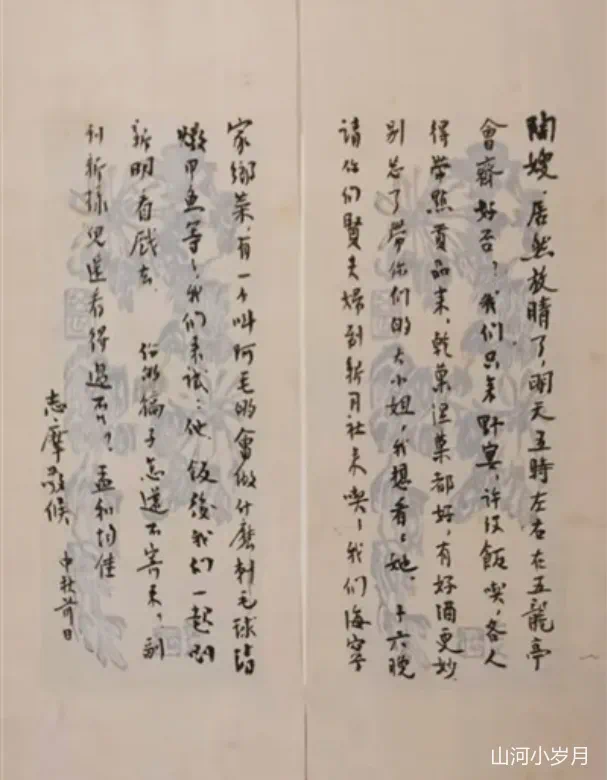 陶嫂，居然放晴了，明天五時左右在五龍亭
會齊好否？我們只未野宴，许没飯喫，各人
得带點貢品来，乾菓湿菓都好，有好酒更妙
别忘了带你们的大小姐，我想看看她。十六晚
請你们賢夫婦到新月社来喫喫我们海宁
家鄉菜，有一个叫阿毛的會做什麽刺毛球
燉甲魚等等，我们来試試他，飯後我们一起到
新明看戲去 稿子怎還不寄来，副
刊新樣兒還看得過不？孟和均佳
志摩敬候 中秋前日
山河小岁月